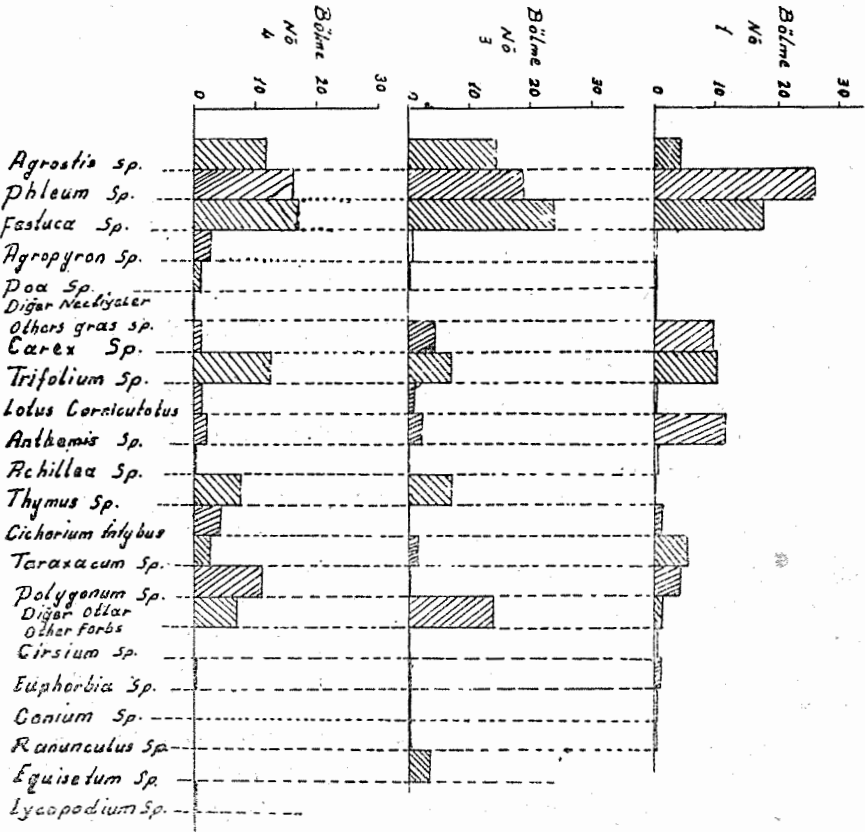 Bölme
Nö
4
0
10
20
30
Bölme
Nö
3
0
10
20
30
Bölme
Nö
1
0
10
20
30
Agrostis sp.
Phleum Sp.
Festuca Sp.
Agropyron Sp.
Poa Sp.
Diğer
Others gras sp.
Carex Sp.
Trifolium Sp.
Lotus Corniculotus
Anthemis Sp.
Achillea Sp.
Thymus Sp.
Cichorium İntybus
Taraxacum Sp.
Polygonum Sp.
Diğer Otlar
Other Forbs
Cirsium Sp.
Euphorbia Sp.
Conium Sp.
Ranunculus Sp
Equisetum Sp.
Lycopodium Sp.